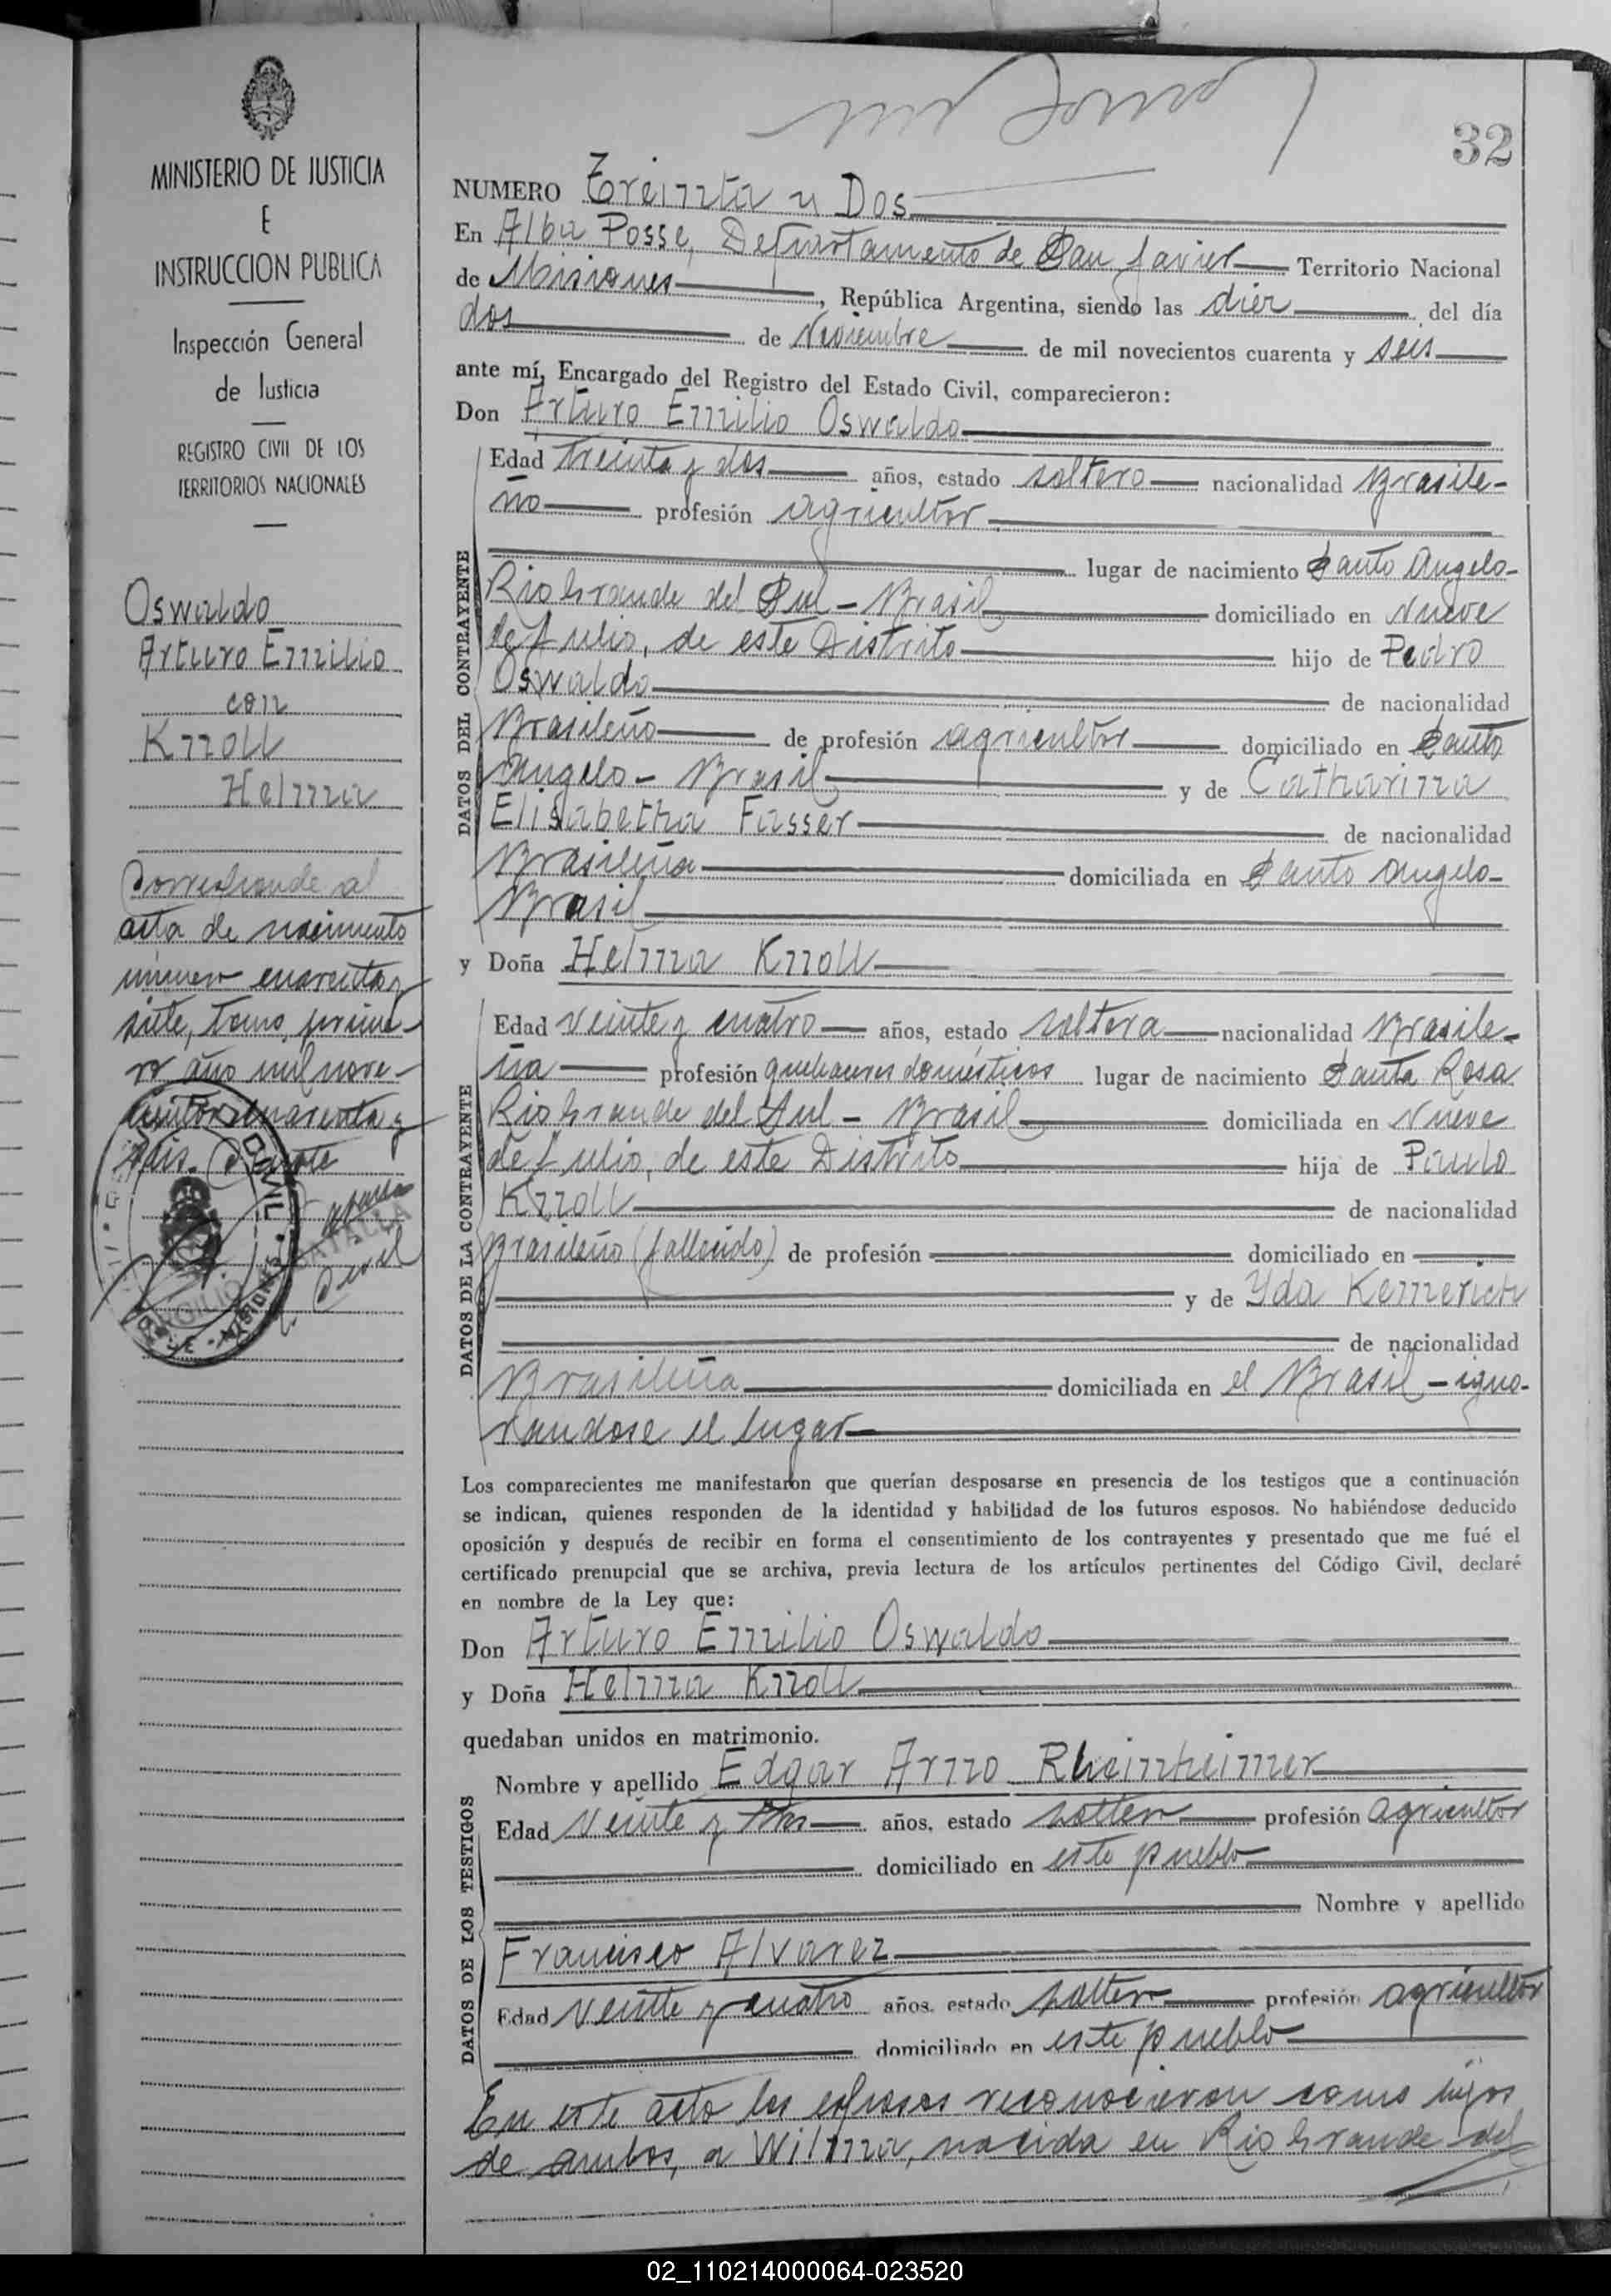 32
MINISTERIO DE JUSTICIA
E
INSTRUCCION PUBLICA
Inspección General
de Justicia
REGISTRO CIVIL DE LOS
TERRITORIOS NACIONALES
Oswaldo
Arturo Emilio
con
Knoll
Helma
Corresponde al
acta de nacimiento
número cuarenta y
siete, tomo prime-
ro año mil nove-
cientos cuarenta y
seis.
NUMERO Treinta y Dos
En Alba Posse, Departamento de San Javier Territorio Nacional
de Misiones, República Argentina, siendo las diez del día
dos de Noviembre de mil novecientos cuarenta y seis
ante mí, Encargado del Registro del Estado Civil, comparecieron:
Don Arturo Emilio Oswaldo
DATOS DEL CONTRAYENTE
Edad treinta y dos años, estado soltero nacionalidad Brasile-
ño profesión agricultor
lugar de nacimiento Santo Angelo-
Rio Grande del Sul - Brasil domiciliado en Nueve
de Julio, de este Distrito hijo de Pedro
Oswaldo de nacionalidad
Brasileño de profesión agricultor domiciliado en Santo
Angelo - Brasil y de Catharina
Elisabetha Fasser de nacionalidad
Brasileña domiciliada en Santo Angelo-
Brasil
y Doña Helma Knoll
DATOS DE LA CONTRAYENTE
Edad veinte y cuatro años, estado soltera nacionalidad Brasile-
ña profesión quehaceres domésticos lugar de nacimiento Santa Rosa
Rio Grande del Sul - Brasil domiciliada en Nueve
de Julio, de este Distrito hija de Paulo
Knoll de nacionalidad
Brasileño (fallecido) de profesión domiciliado en
y de Yda Kemerich
de nacionalidad
Brasileña domiciliada en el Brasil - igno-
randose el lugar
Los comparecientes me manifestaron que querían desposarse en presencia de los testigos que a continuación
se indican, quienes responden de la identidad y habilidad de los futuros esposos. No habiéndose deducido
oposición y después de recibir en forma el consentimiento de los contrayentes y presentado que me fué el
certificado prenupcial que se archiva, previa lectura de los artículos pertinentes del Código Civil, declaré
en nombre de la Ley que:
Don Arturo Emilio Oswaldo
y Doña Helma Knoll
quedaban unidos en matrimonio.
DATOS DE LOS TESTIGOS
Nombre y apellido Edgar Arno Rheinheimer
Edad veinte y años, estado soltero profesión agricultor
domiciliado en este pueblo
Nombre y apellido
Francisco Alvarez
Edad veinte y cuatro años, estado soltero profesión agricultor
domiciliado en este pueblo
En este acto los esposos reconocieron como hijos
de ambos, a Wilma, nacida en Rio Grande del
02_110214000064-023520